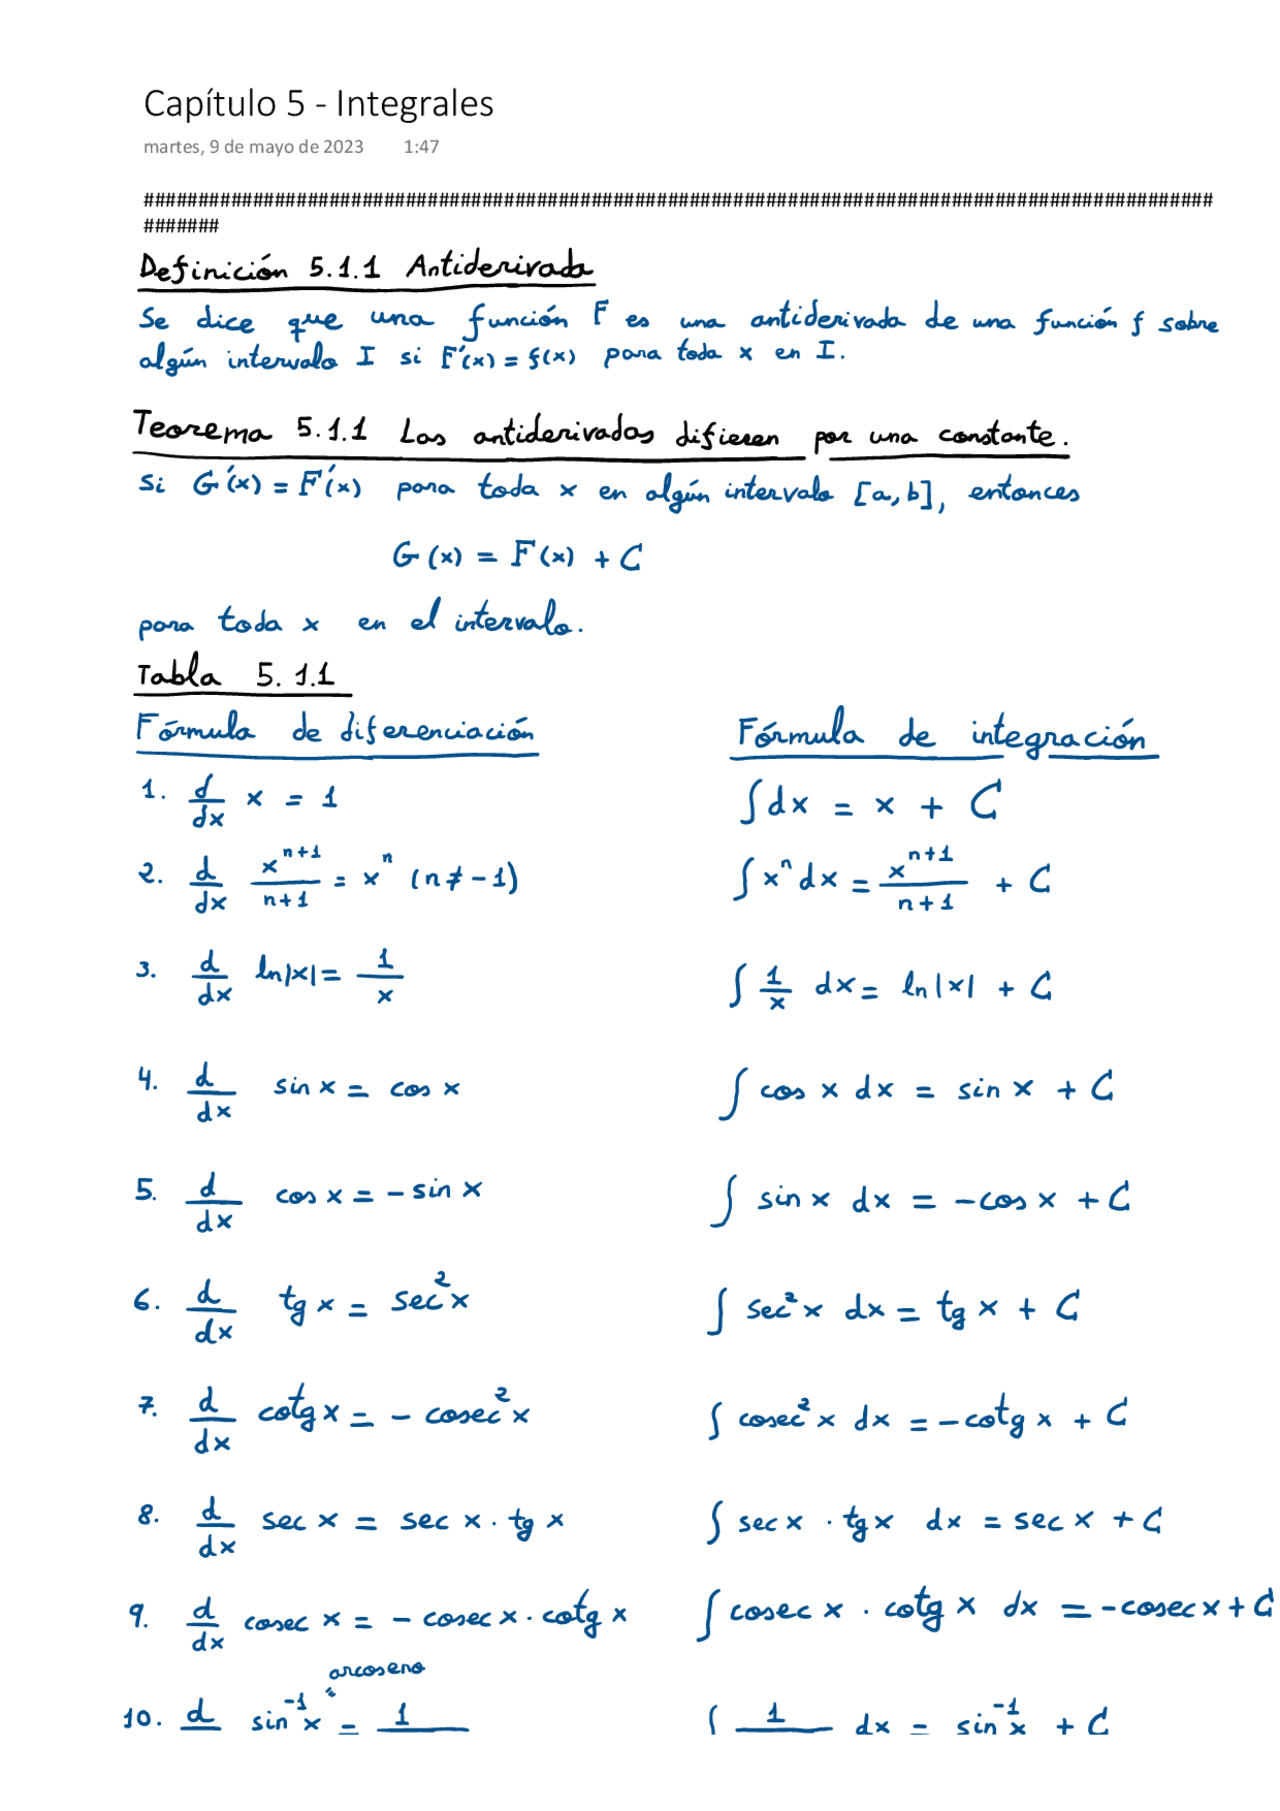 Capítulo 5 - Integrales
martes, 9 de mayo de 2023 1:47
##################################################################################################
#######
Definición 5.1.1 Antiderivada
Se dice que una función F es una antiderivada de una función f sobre
algún intervalo I si F'(x) = f(x) para toda x en I.
Teorema 5.1.1 Las antiderivadas difieren por una constante.
Si G'(x) = F'(x) para toda x en algún intervalo [a,b], entonces
G(x) = F(x) + C
para toda x en el intervalo.
Tabla 5.1.1
Fórmula de diferenciación Fórmula de integración
1. d/dx x = 1 ∫dx = x + C
2. d/dx x^(n+1)/(n+1) = x^n (n ≠ -1) ∫x^n dx = x^(n+1)/(n+1) + C
3. d/dx ln|x| = 1/x ∫ 1/x dx = ln|x| + C
4. d/dx sin x = cos x ∫ cos x dx = sin x + C
5. d/dx cos x = - sin x ∫ sin x dx = -cos x + C
6. d/dx tg x = sec² x ∫ sec² x dx = tg x + C
7. d/dx cotg x = - cosec² x ∫ cosec² x dx = -cotg x + C
8. d/dx sec x = sec x · tg x ∫ sec x · tg x dx = sec x + C
9. d/dx cosec x = - cosec x · cotg x ∫ cosec x · cotg x dx = -cosec x + C
arcoseno
10. d sin⁻¹ x = 1 ∫ 1 dx = sin⁻¹ x + C